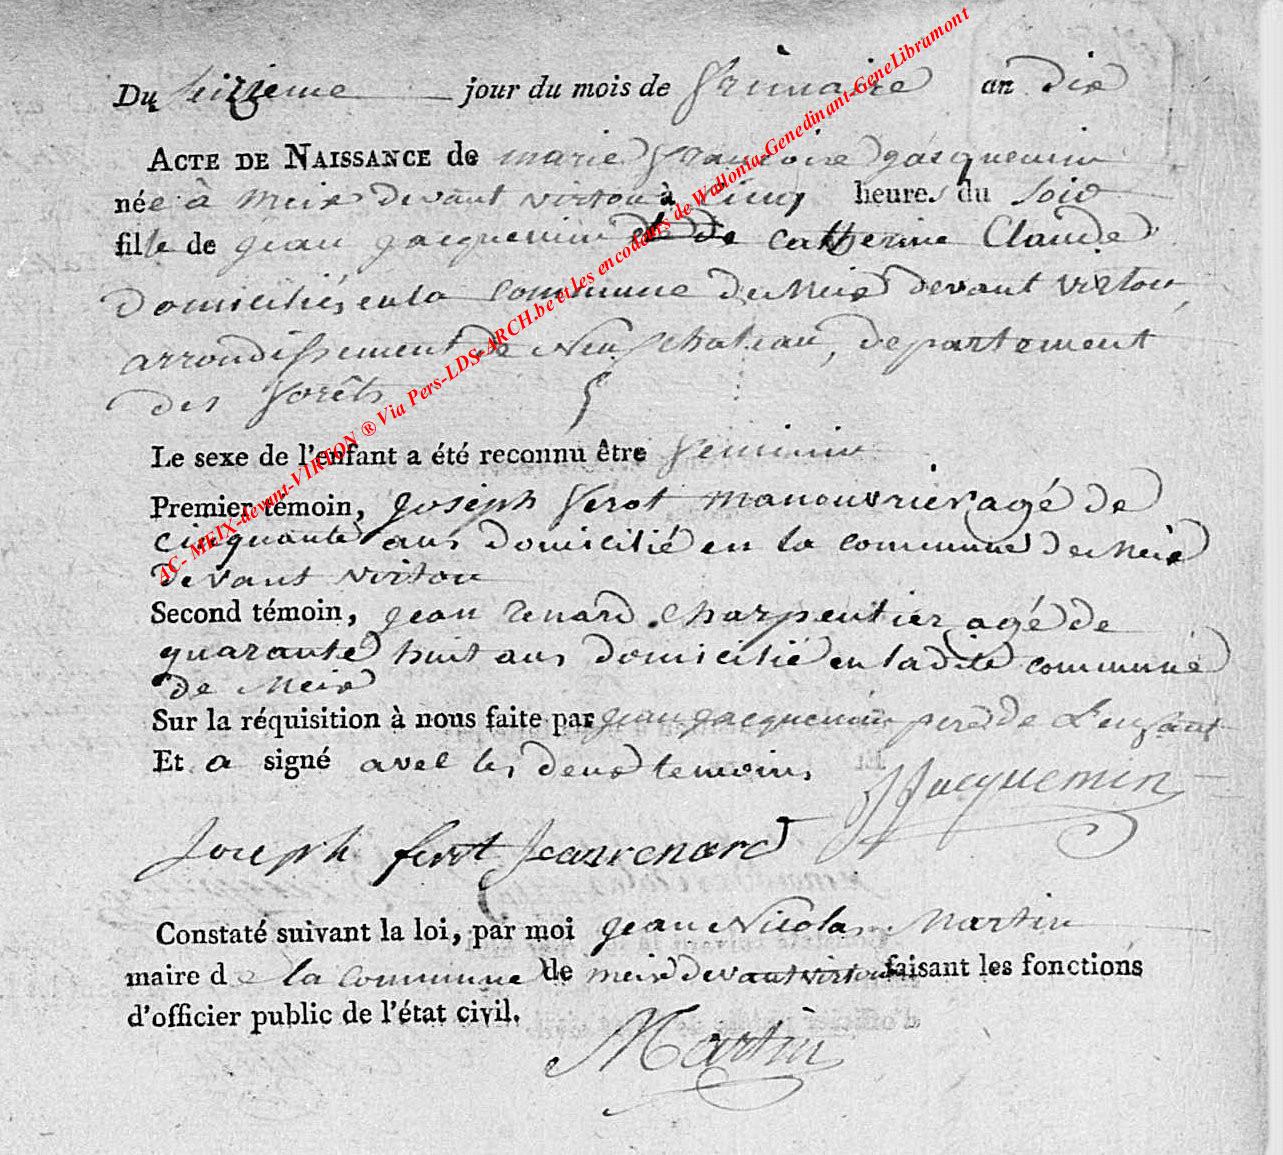 Du seizieme jour du mois de frimaire an dix
ACTE DE NAISSANCE de marie francoise jacquemin
née à Meix devant virton à cinq heures du soir
fille de jean jacquemin et de catherine Claude
domiciliés en la commune de Meix devant virton,
arrondissement de Neufchateau, departement
des forêts
Le sexe de l'enfant a été reconnu être feminin
Premier témoin, joseph ferot manouvrier agé de
cinquante ans domicilié en la commune de Meix
devant virton
Second témoin, jean renard charpentier agé de
quarante huit ans domicilié en ladite commune
de Meix
Sur la réquisition à nous faite par jean jacquemin pere de l'enfant
Et a signé avec les deux temoins
JJacquemin
Joseph ferot Jean renard
Constaté suivant la loi, par moi jean Nicolas Martin
maire de la commune de meix devant virton faisant les fonctions
d'officier public de l'état civil.
Martin
AC- MEIX-devant-VIRTON ® Via Pers-LDS-ARCH.be et les encodeurs de Wallonia-Genedinant-GeneLibramont